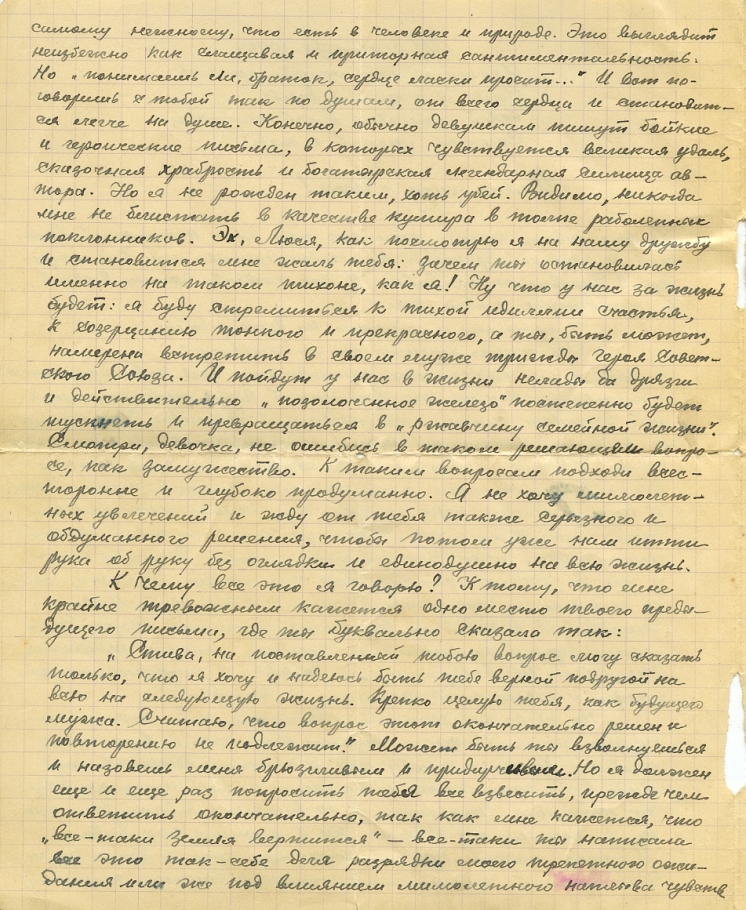 самому нежному, что есть в человеке и природе. Это выглядит
неизбежно как слащавая и приторная сантиментальность.
Но „понимаешь ли, браток, сердце ласки просит..." И вот по-
говоришь с тобой так по душам, от всего сердца и становит-
ся легче на душе. Конечно, обычно девушкам пишут бойкие
и героические письма, в которых чувствуется великая удаль,
сказочная храбрость и богатырская легендарная силища ав-
тора. Но я не рожден таким, хоть убей. Видимо, никогда
мне не блистать в качестве кумира в толпе раболепных
поклонников. Эх, Люся, как посмотрю я на нашу дружбу
и становится мне жаль тебя: зачем ты остановилась
именно на таком тихоне, как я! Ну что у нас за жизнь
будет: я буду стремиться к тихой идиллии счастья,
к созерцанию тонкого и прекрасного, а ты, быть может,
намерена встретить в своем муже трижды героя Совет-
ского Союза. И пойдут у нас в жизни нелады да дрязги
и действительно „позолоченное железо" постепенно будет
тускнеть и превращаться в „ржавчину семейной жизни".
Смотри, девочка, не ошибись в таком решающем вопро-
се, как замужество. К таким вопросам подходи всес-
торонне и глубоко продуманно. Я не хочу мимолет-
ных увлечений и жду от тебя также серьезного и
обдуманного решения, чтобы потом уже нам итти
рука об руку без оглядки и единодушно на всю жизнь.
К чему все это я говорю? К тому, что мне
крайне тревожным кажется одно место твоего преды-
дущего письма, где ты буквально сказала так:
„Стива, на поставленный тобою вопрос могу сказать
только, что я хочу и надеюсь быть тебе верной подругой на
всю на следующую жизнь. Крепко целую тебя, как будущего
мужа. Считаю, что вопрос этот окончательно решен и
повторению не подлежит." Может быть ты взволнуешься
и назовешь меня брюзгливым и придирчивым. Но я должен
еще и еще раз попросить тебя все взвесить, прежде чем
ответить окончательно, так как мне кажется, что
„все-таки земля вертится" – все-таки ты написала
все это так-себе для разрядки моего трепетного ожи-
дания или же под влиянием мимолетного наплыва чувств